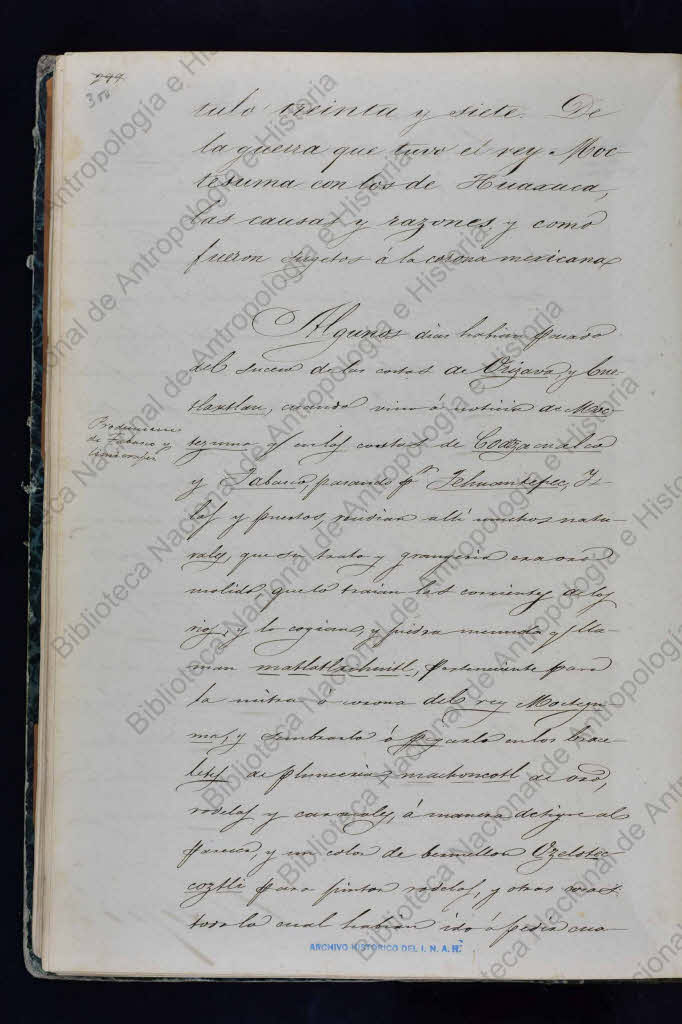 244
350
tulo treinta y siete. De
la guerra que tuvo el rey Moc-
tesuma con los de Huaxaca,
las causas y razones, y como
fueron sugetos á la corona mexicana
Algunos dias habian pasado
del suceso de las costas de Orizava y Cue-
tlaxtlan, cuando vino á noticia de Moc-
tezuma q/ en las costas de Coatzacualco
y Tabasco pasando pr. Tehuantepec, Is-
las y puertos, residian allí muchos natu-
rales, que su trato y grangeria era oro
molido, que lo traian las corrientes de los
rios, y lo cogian, y piedra menuda q/ lla-
man matlatlxihuitl, perteneciente para
la mitra ó corona del rey Moctezu-
ma, y sembrarlo ó pegarlo en los brace-
letes de plumeria, machoncotl de oro,
rodelas y caracoles, á manera de tigre al
parecer, y un color de bermellon
coztli para pintar rodelas, y otras
todo lo cual habian ido á pedir cua-
de Tabasco y
ARCHIVO HISTORICO DEL I. N. A. H.
Biblioteca Nacional de Antropología e Historia